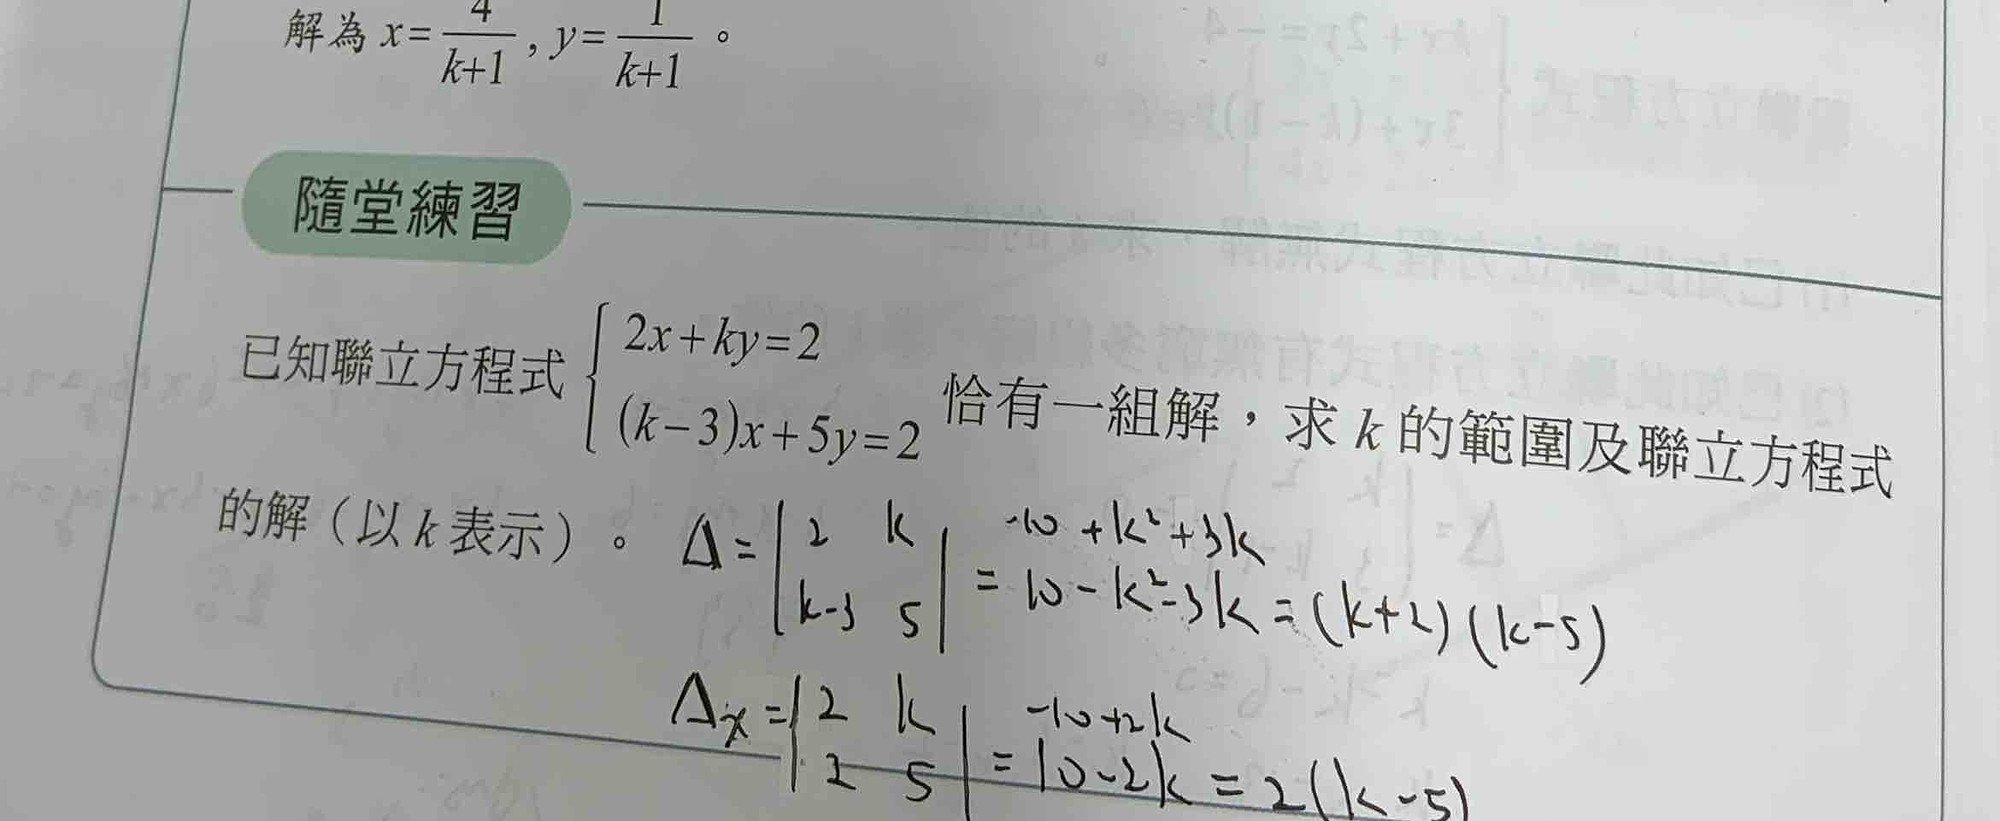 解為 x=4/(k+1) , y=1/(k+1) 。
隨堂練習
已知聯立方程式 { 2x+ky=2
(k-3)x+5y=2 恰有一組解，求 k 的範圍及聯立方程式
的解（以 k 表示）。
-10 +k²+3k
Δ = | 2 k
k-3 5 | = 10-k²-3k = (k+2)(k-5)
-10+2k
Δx = | 2 k
2 5 | = 10-2k = 2(k-5)